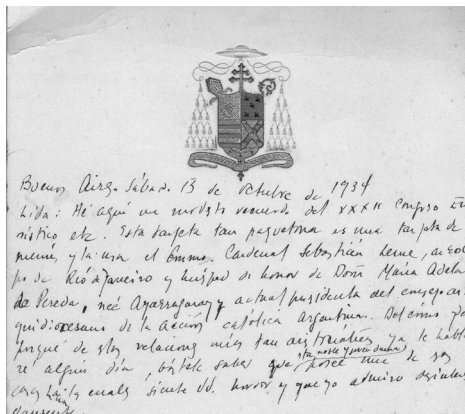 Buenos Aires. Sábado 13 de octubre de 1934
Lida: He aquí un modesto recuerdo del XXXII congreso eu
rístico etc. Esta tarjeta tan paquetona es una tarjeta de
menús y la usa el Emmo. Cardenal Sebastián Leme, arzob
po de Río de Janeiro y huésped de honor de Doña María Adela
de Pereda, née Ayarragaray y actual presidenta del consejo ar
quidiocesano de la Acción católica Argentina. Del cómo y
porqué de estas relaciones mías tan aristocráticas ya le habla
ré algún día, bástele saber que
esta noble y joven dama
posee una de
casas las cuales siente Vd. horror y que yo admiro